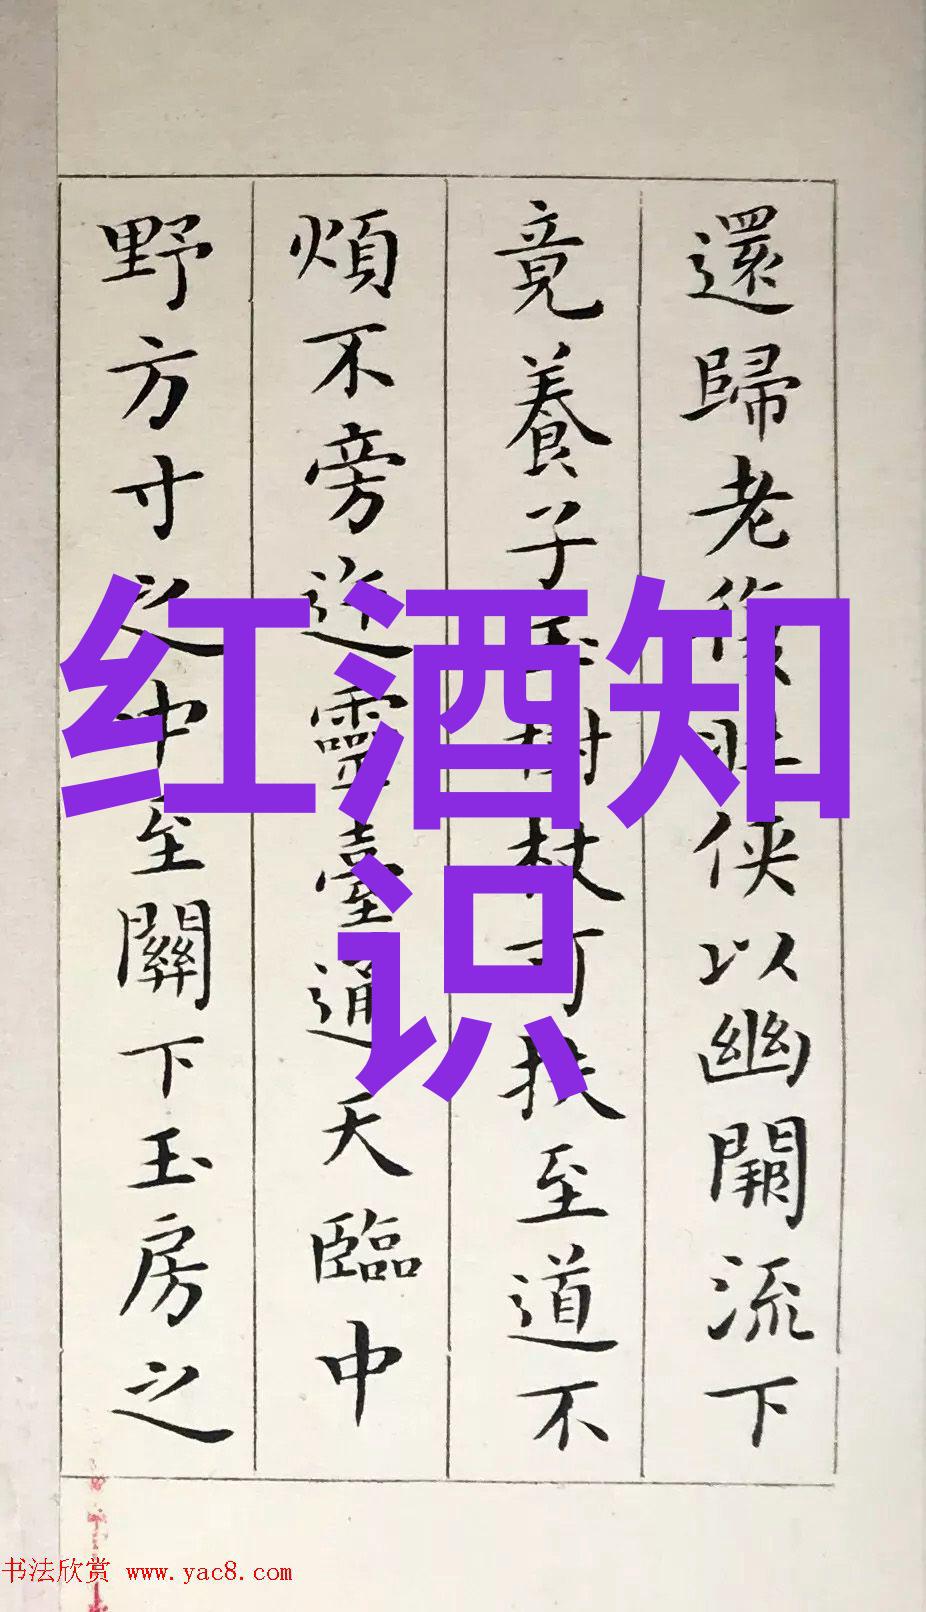 還歸老復壯俠以幽闕流下
竟養子玉樹杖可扶至道不
煩不旁迕靈臺通天臨中
野方寸之中至關下玉房之
红酒知
识
书法欣赏 www.yac8.com